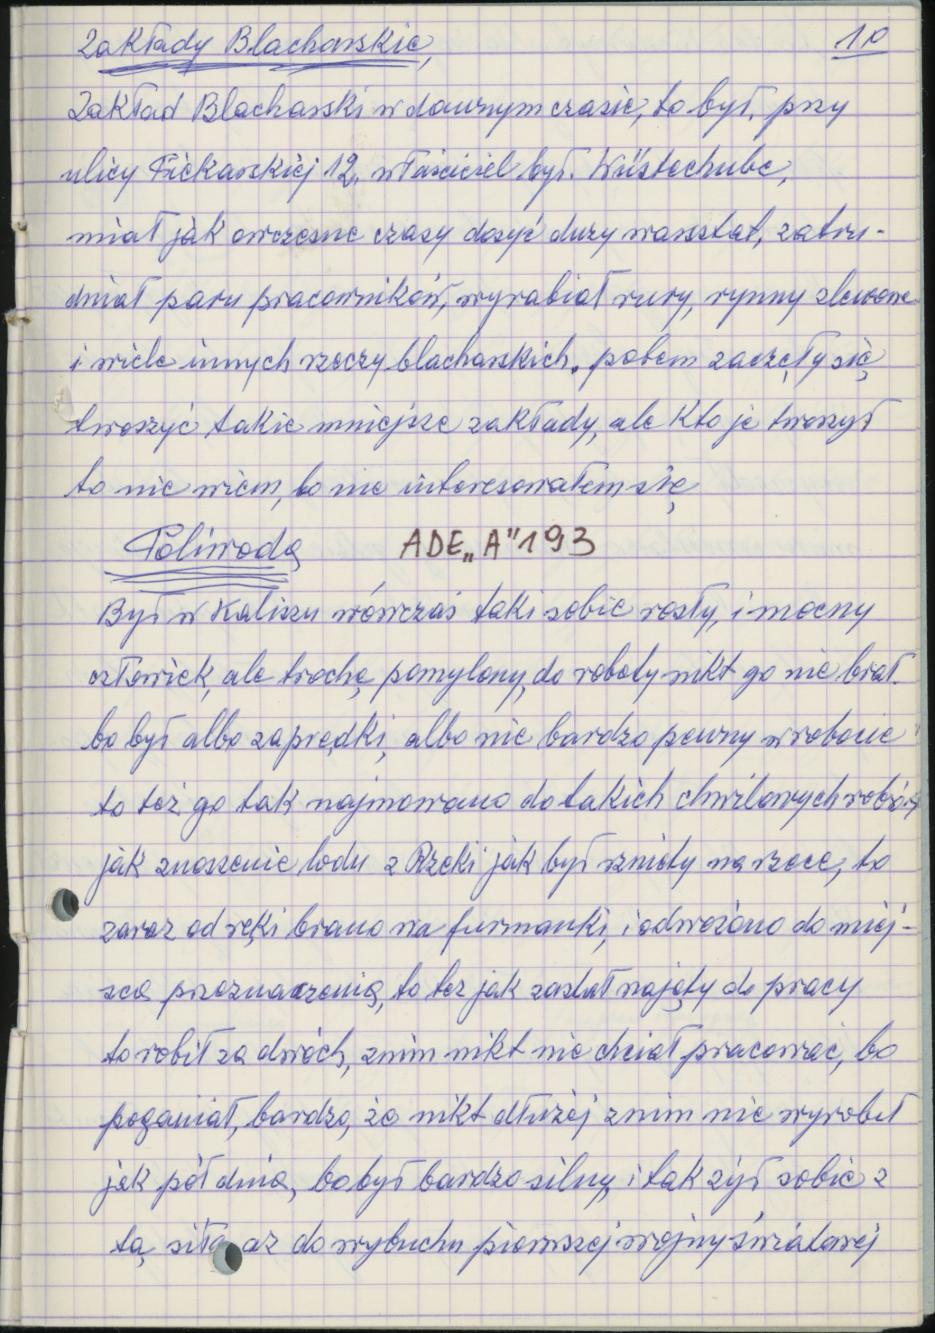 Zakłady Blacharskie, 10
Zakład Blacharski w dawnym czasie, to był, przy
ulicy Piekarskiej 12, właściciel był. Wüstechube,
miał jak owczesne czasy dosyć duży warsstat, zatru-
dniał paru pracowników, wyrabiał rury, rynny zlewowe
i wiele innych rzeczy blacharskich, potem zaczęły się
tworzyć takie mniejsze zakłady, ale kto je tworzył
to nie wiem, bo nie interesowałem się
Poliwoda ADE „A" 193
Był w Kaliszu wówczas taki sobie rosły, i mocny
człowiek, ale trochę pomylony, do roboty nikt go nie brał.
bo był albo zaprędki, albo nie bardzo pewny w robocie
to też go tak najmowano do takich chwilowych robót
jak znoszenie lodu z Rzeki jak był rznięty na rzece, to
zaraz od ręki brano na furmanki, i odwożono do miej-
sca przeznaczenia, to też jak zastał najęty do pracy
to robił za dwóch, znim nikt nie chciał pracować, bo
poganiał, bardzo, że nikt dłużej znim nie wyrobił
jak pół dnia, bo był bardzo silny, i tak żył sobie z
tą siłą aż do wybuchu pierwszej wojny światowej